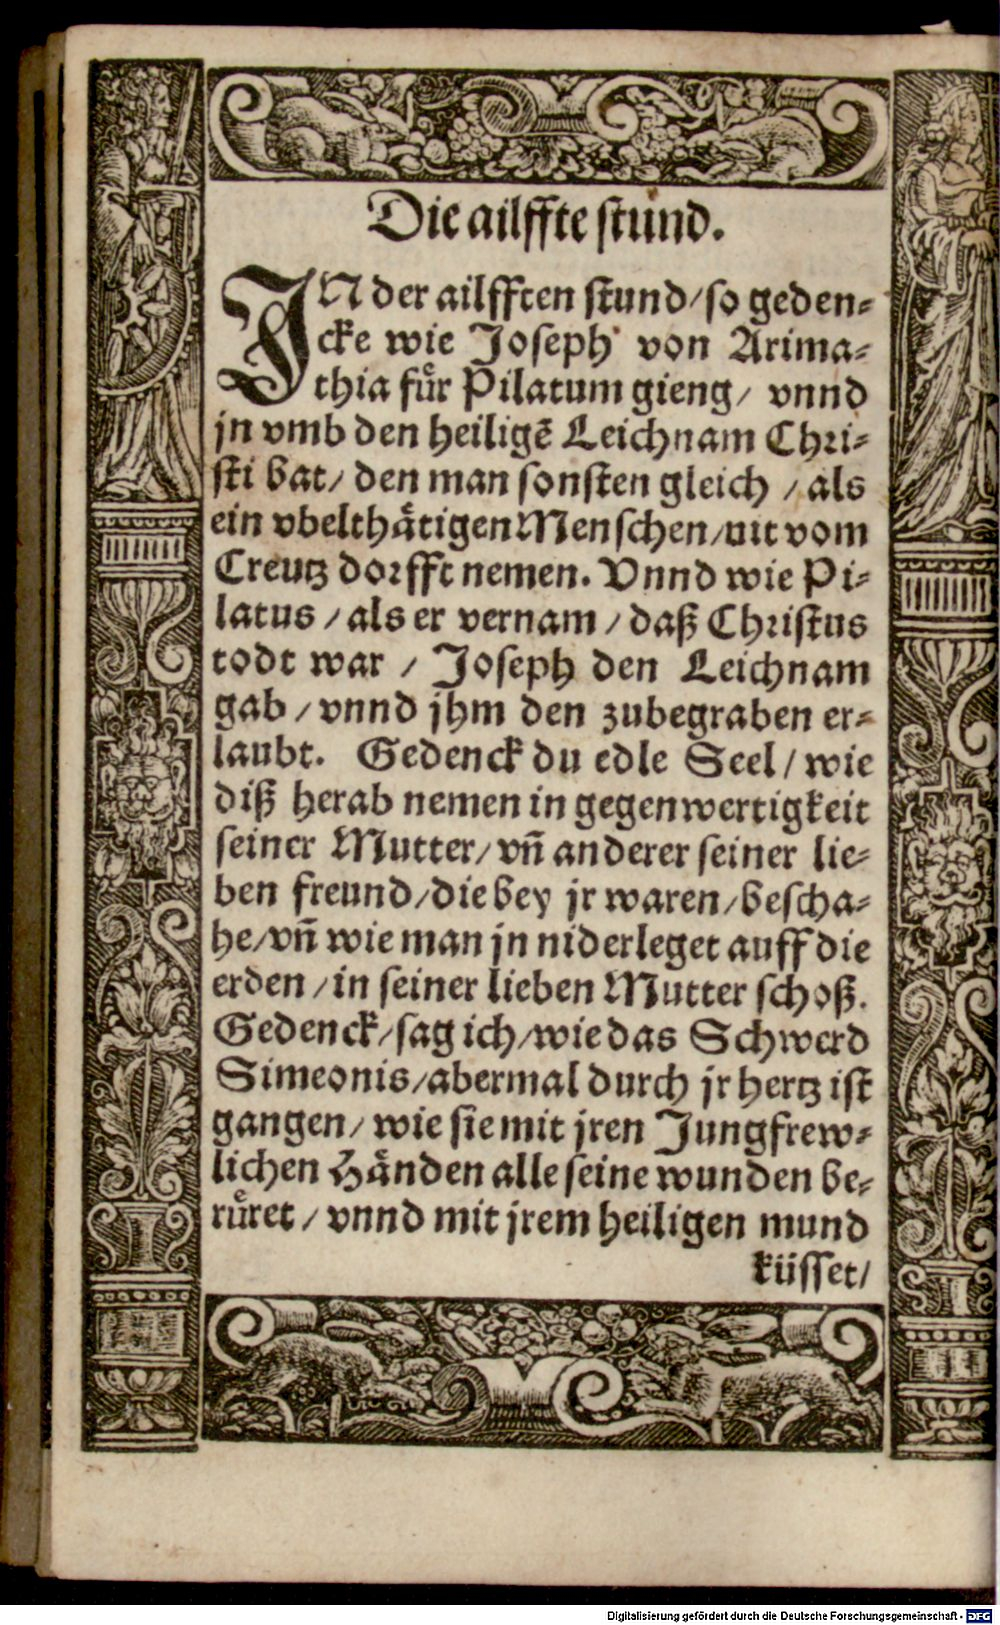 Die ailffte stund.
IN der ailfften stund/so geden⸗
cke wie Joseph von Arima⸗
thia fuͤr Pilatum gieng/ vnnd
jn vmb den heiligē Leichnam Chri⸗
sti bat/ den man sonsten gleich /als
ein vbelthaͤtigen Menschen/nit vom
Creutz dorfft nemen. Vnnd wie Pi⸗
latus /als er vernam /daß Christus
todt war / Joseph den Leichnam
gab /vnnd jhm den zubegraben er⸗
laubt. Gedenck du edle Seel/ wie
diß herab nemen in gegenwertigkeit
seiner Mutter/vn̄ anderer seiner lie⸗
ben freund/die bey jr waren/bescha⸗
he/vn̄ wie man jn niderleget auff die
erden /in seiner lieben Mutter schoß.
Gedenck/sag ich/wie das Schwerd
Simeonis/abermal durch jr hertz ist
gangen/ wie sie mit jren Jungfrew⸗
lichen Haͤnden alle seine wunden be⸗
ruͤret / vnnd mit jrem heiligen mund
küsset/
Digitalisierung gefördert durch die Deutsche Forschungsgemeinschaft - DFG